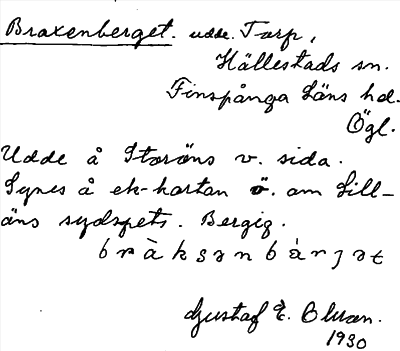 Braxenberget. udde. Torp,
Hällestads sn.
Finspånga Läns hd.
Ögl.
Udde å Storöns v. sida.
Synes å ek-kartan ö. om Lill-
öns sydspets. Bergig.
bràksənbàrjət
Gustaf E.
1930